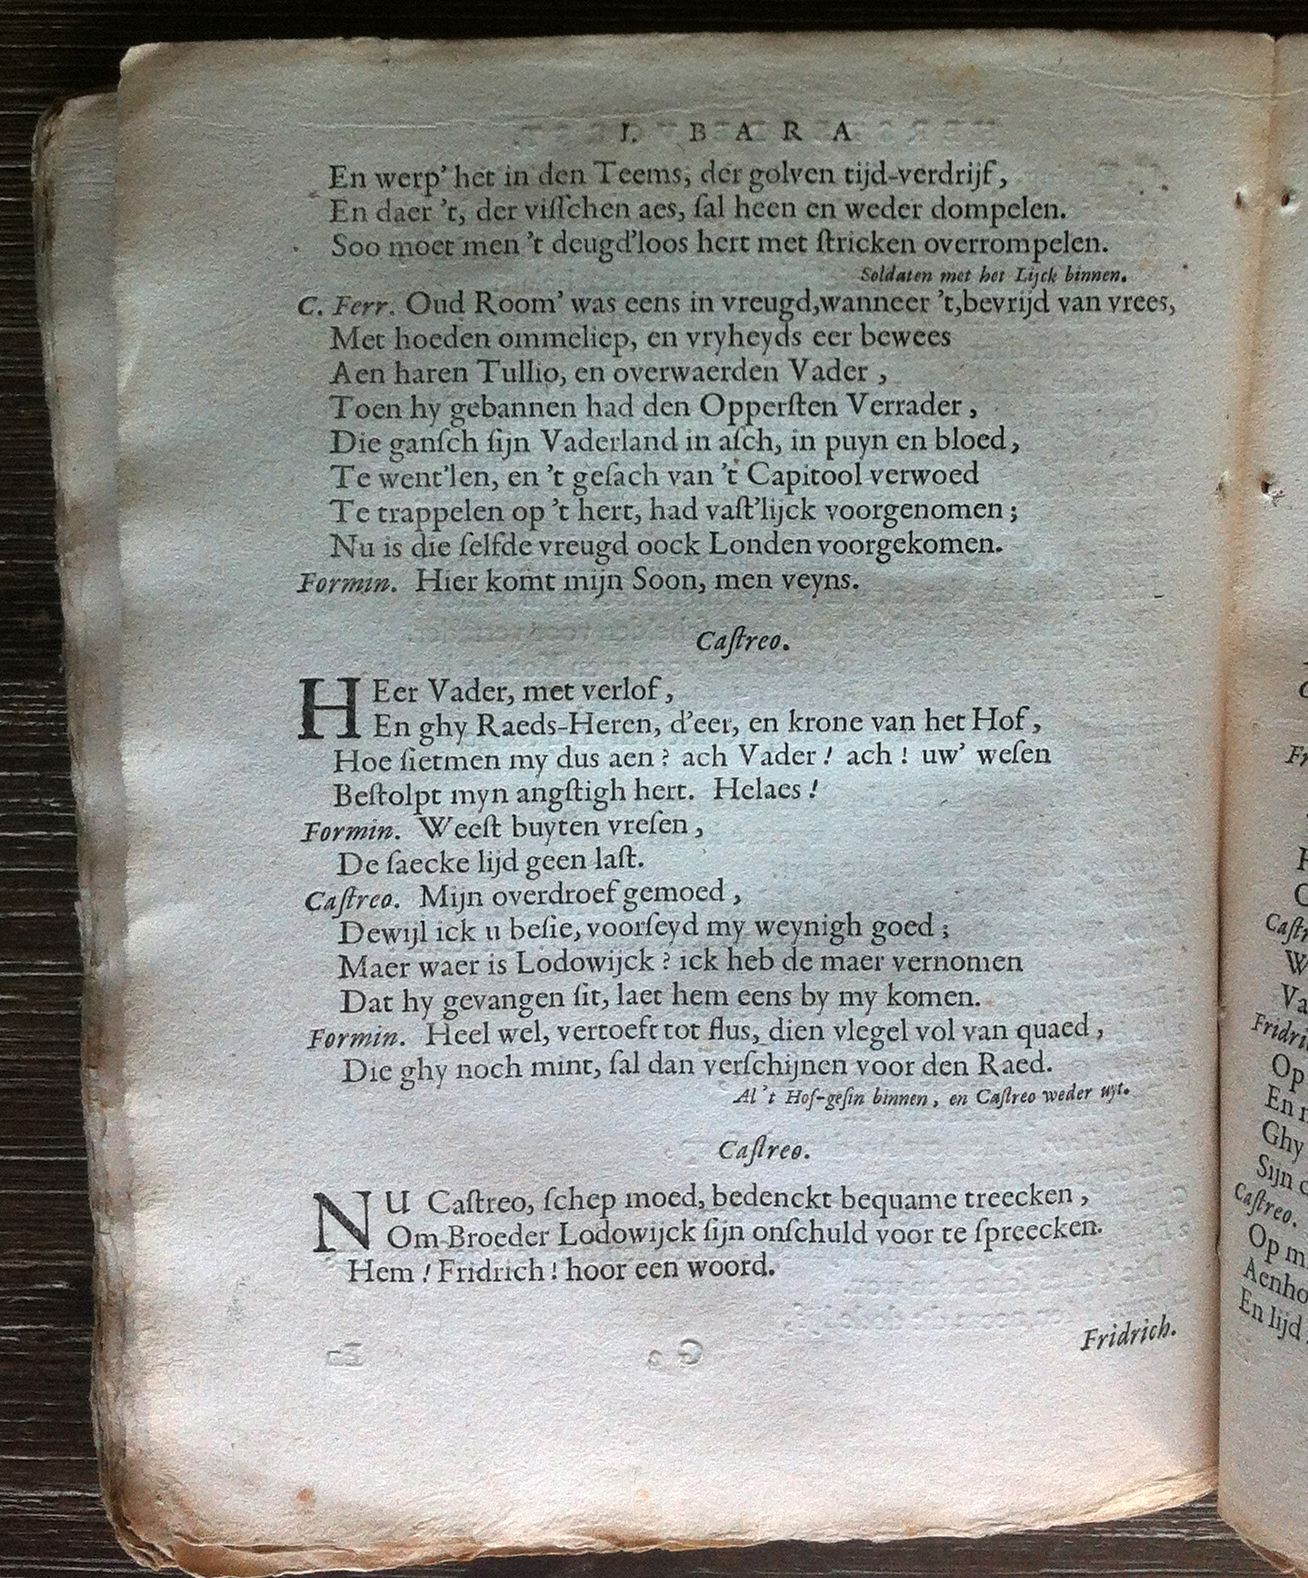 I. BARA
En werp' het in den Teems, der golven tijd-verdrijf,
En daer 't, der visschen aes, sal heen en weder dompelen.
Soo moet men 't deugd'loos hert met stricken overrompelen.
Soldaten met het Lijck binnen.
C. Ferr. Oud Room' was eens in vreugd, wanneer 't, bevrijd van vrees,
Met hoeden ommeliep, en vryheyds eer bewees
Aen haren Tullio, en overwaerden Vader,
Toen hy gebannen had den Oppersten Verrader,
Die gansch sijn Vaderland in asch, in puyn en bloed,
Te went'len, en 't gesach van 't Capitool verwoed
Te trappelen op 't hert, had vast'lijck voorgenomen;
Nu is die selfde vreugd oock Londen voorgekomen.
Formin. Hier komt mijn Soon, men veyns.
Castreo.
HEer Vader, met verlof,
En ghy Raeds-Heren, d'eer, en krone van het Hof,
Hoe sietmen my dus aen? ach Vader! ach! uw' wesen
Bestolpt myn angstigh hert. Helaes!
Formin. Weest buyten vresen,
De saecke lijd geen last.
Castreo. Mijn overdroef gemoed,
Dewijl ick u besie, voorseyd my weynigh goed;
Maer waer is Lodowijck? ick heb de maer vernomen
Dat hy gevangen sit, laet hem eens by my komen.
Formin. Heel wel, vertoeft tot flus, dien vlegel vol van quaed,
Die ghy noch mint, sal dan verschijnen voor den Raed.
Al 't Hof-gesin binnen, en Castreo weder uyt.
Castreo.
NU Castreo, schep moed, bedenckt bequame treecken,
Om Broeder Lodowijck sijn onschuld voor te spreecken.
Hem! Fridrich! hoor een woord.
Fridrich.
Castr
Va
Fridri
Op
En
Ghy
Sijn
Castreo.
Op m
Aenho
En lijd